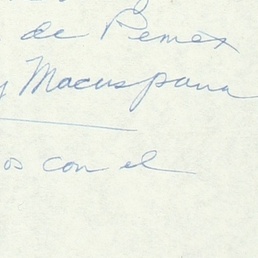 de Pemex
y Macuspana
os con el